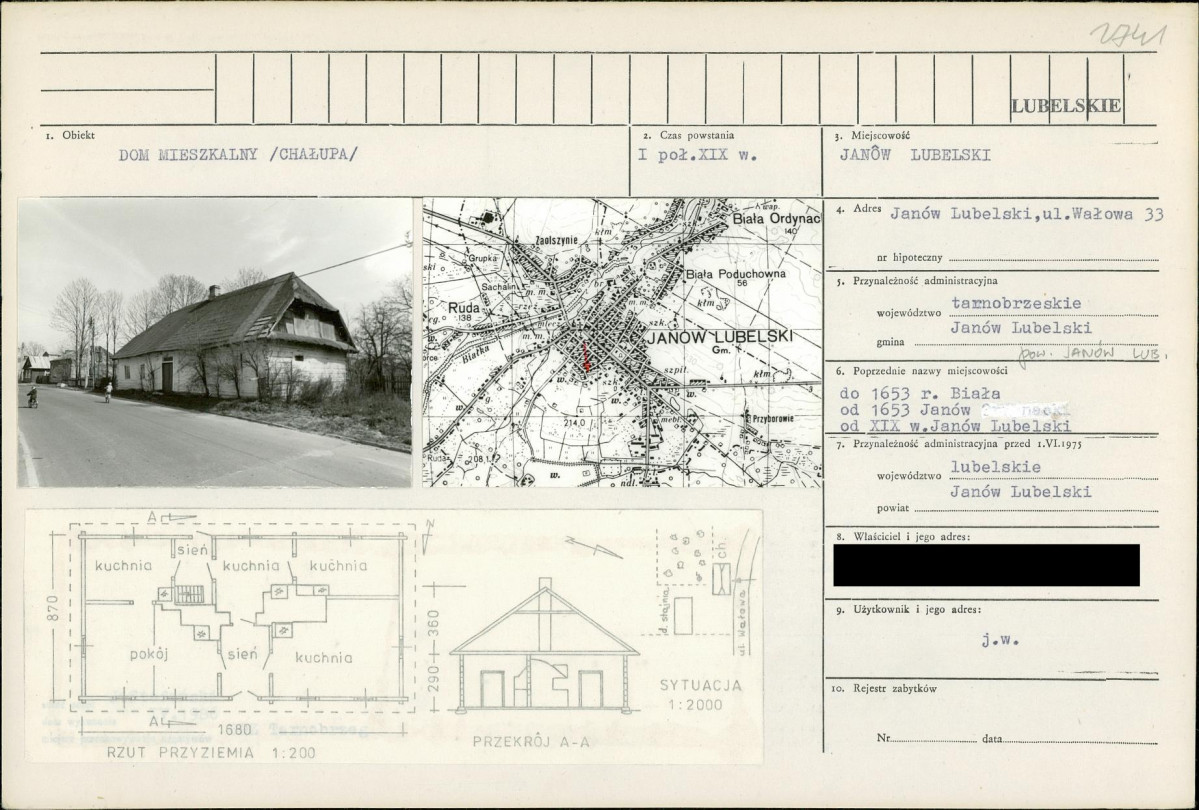 2741
LUBELSKIE
1. Obiekt
DOM MIESZKALNY /CHAŁUPA/
2. Czas powstania
I poł.XIX w.
3. Miejscowość
JANÓW LUBELSKI
4. Adres Janów Lubelski,ul.Wałowa 33
nr hipoteczny
5. Przynależność administracyjna
tarnobrzeskie
województwo
Janów Lubelski
gmina
pow. JANÓW LUB.
6. Poprzednie nazwy miejscowości
do 1653 r. Biała
od 1653 Janów
od XIX w.Janów Lubelski
7. Przynależność administracyjna przed 1.VI.1975
lubelskie
województwo
Janów Lubelski
powiat
8. Właściciel i jego adres:
9. Użytkownik i jego adres:
j.w.
10. Rejestr zabytków
Nr. data
Biała Ordynac
140
Zaolszynie
kłm
szk.
Grupka
Sachalin
m. m.
br
Biała Poduchowna
56
kłm
Ruda
138
szk.
JANÓW LUBELSKI
Gm.
m. m.
Białka
szpit.
kłm
w.
w.
g.
w.
Przyborowie
214,0
mebl
Ruda
208,1
w.
ndl.
A
sień
kuchnia
kuchnia
kuchnia
870
pokój
sień
kuchnia
A
1680
RZUT PRZYZIEMIA 1:200
N
360
290
PRZEKRÓJ A-A
ch.
d. stajnia
ul Wałowa
SYTUACJA
1:2000
Tarnobrzeg